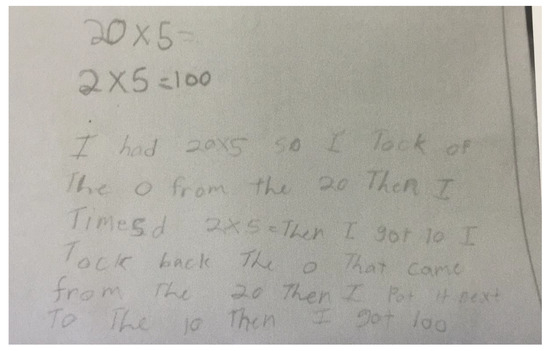 20×5=
2×5=100
I had 20×5 so I Tock of
The 0 from the 20 Then I
Timesd 2×5=Then I got 10 I
Tock back The 0 That came
from The 20 Then I Pot it next
To The 10 Then I got 100